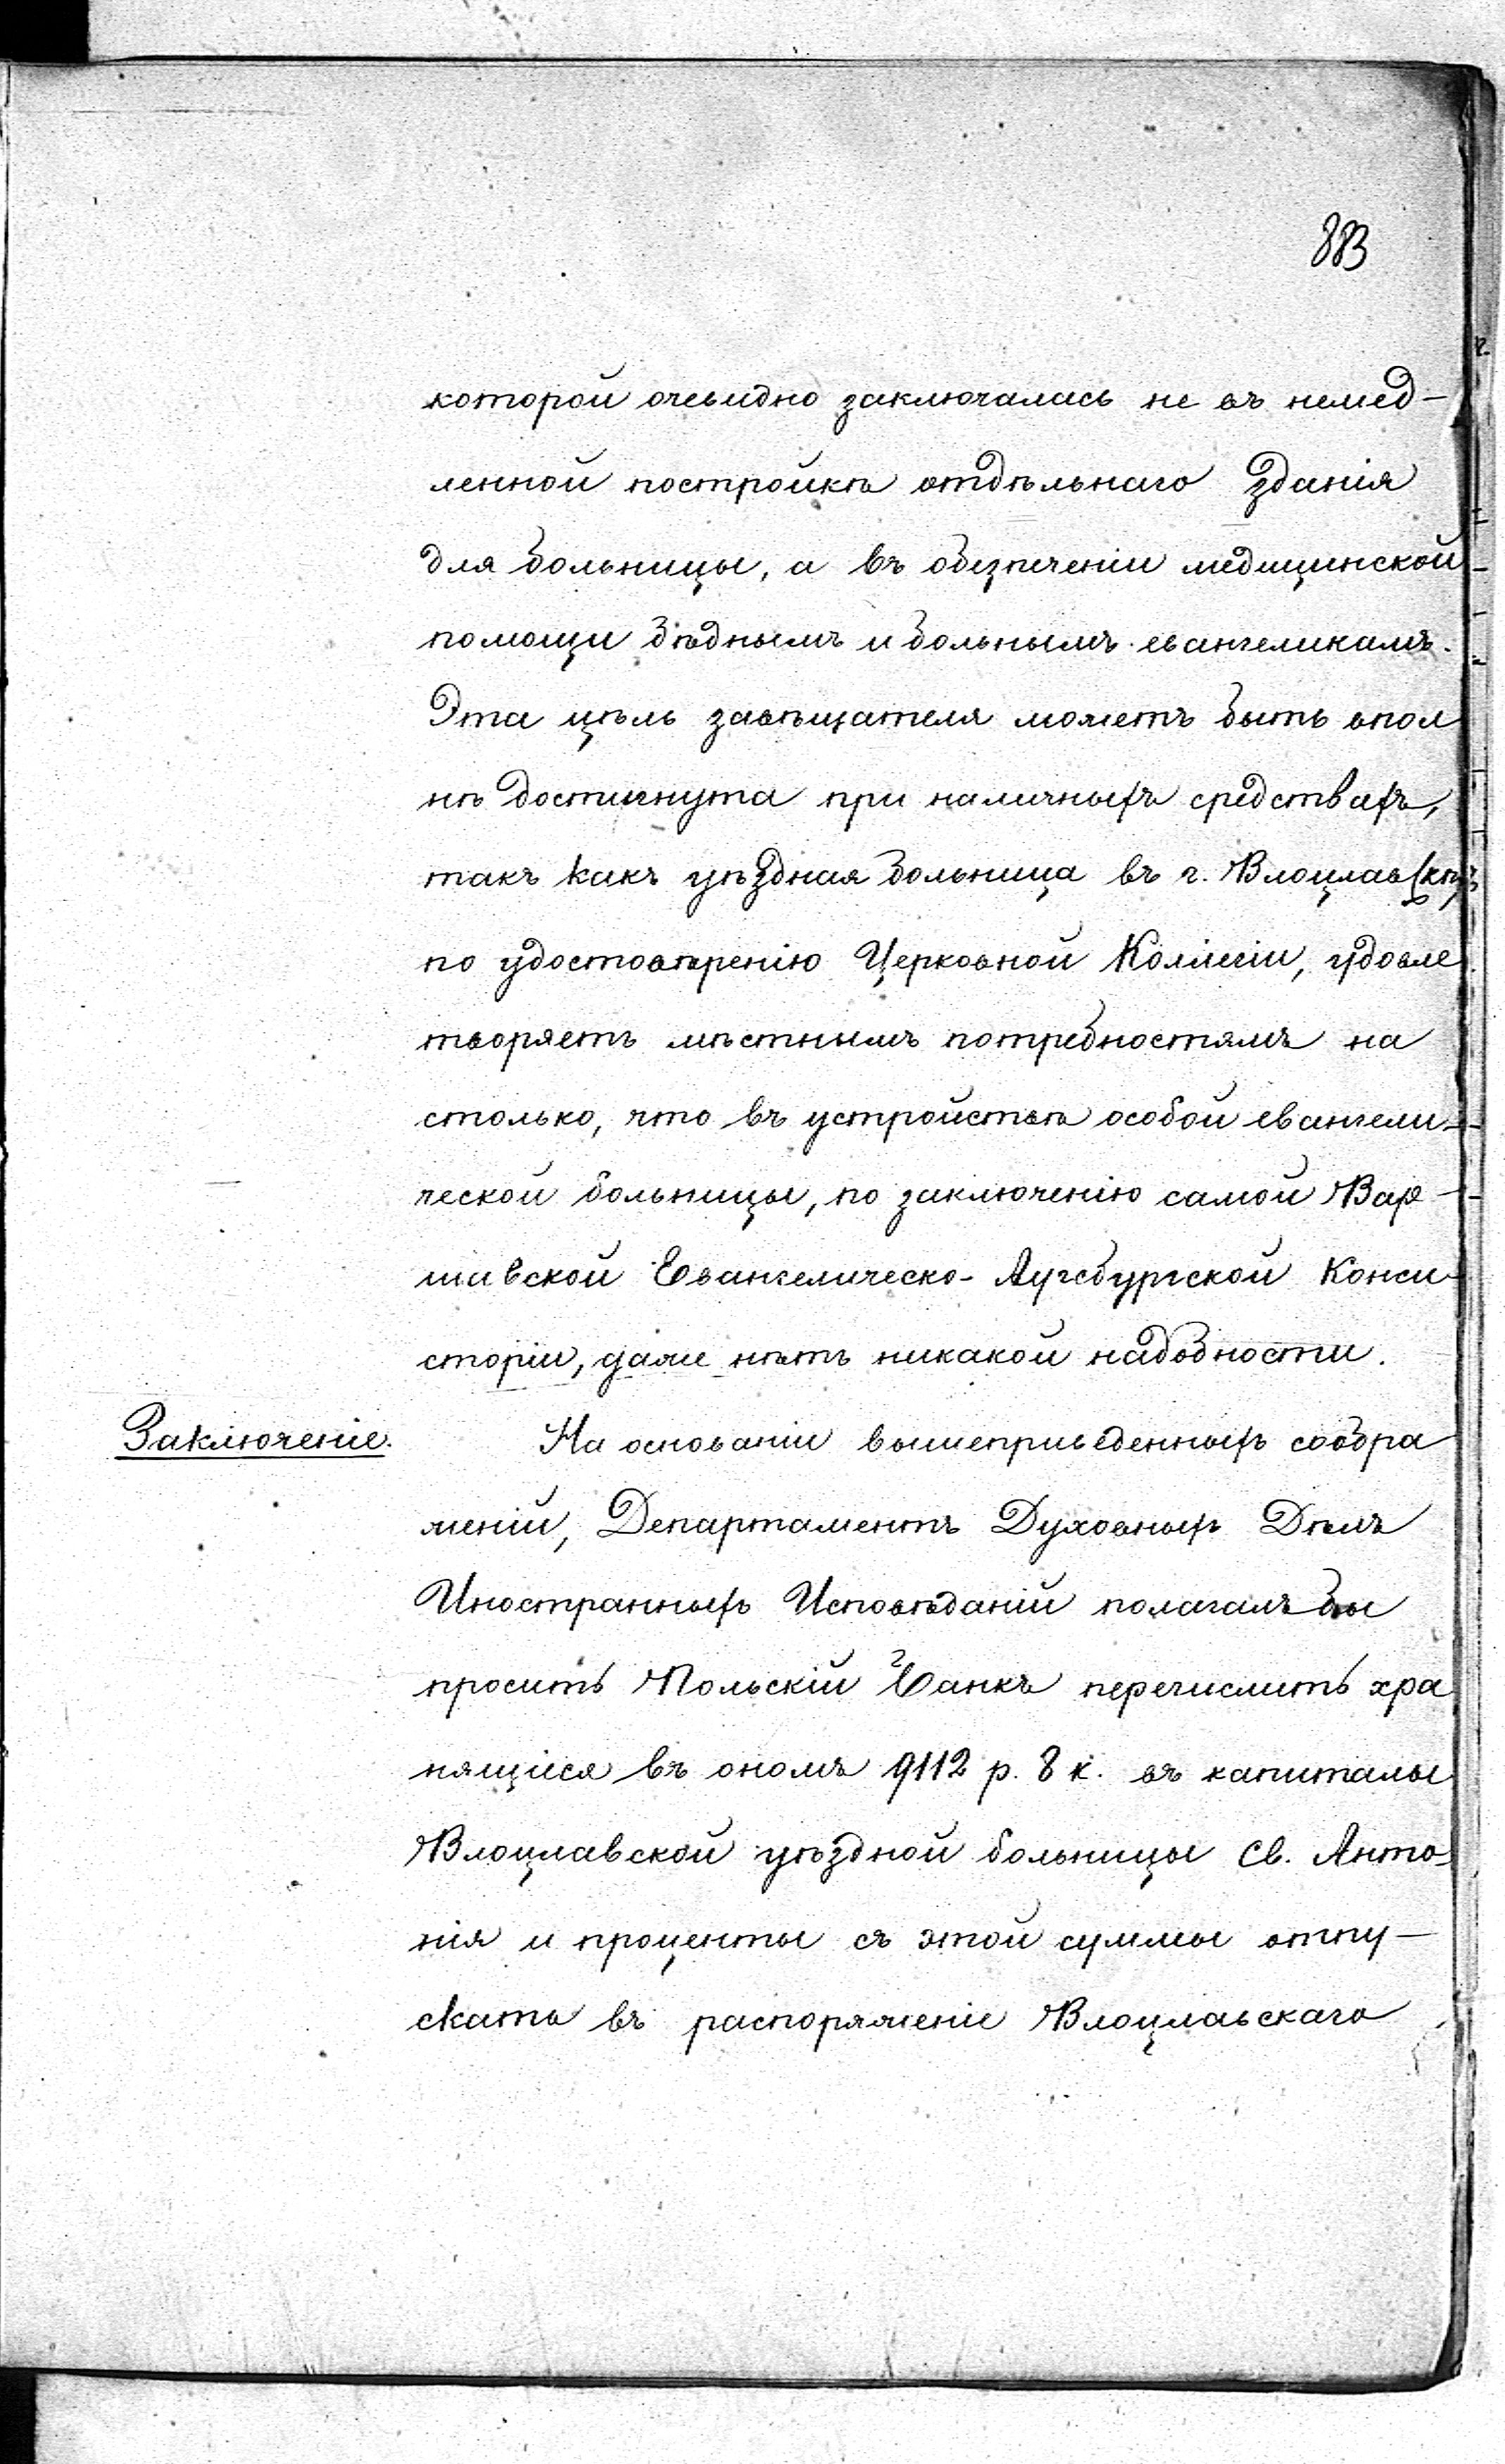 883
которой очевидно заключалась не въ немед-
ленной постройкѣ отдѣльнаго зданія
для больницы, а въ обезпеченіи медицинской
помощи бѣднымъ и больнымъ евангеликамъ.
Эта цѣль завѣщателя можетъ быть впол
нѣ достигнута при наличныхъ средствахъ,
такъ какъ уѣздная больница въ г. Влоцлавскѣ
по удостовѣренію Церковной Коллегіи, удовле
творяетъ мѣстнымъ потребностямъ на
столько, что въ устройствѣ особой евангели-
ческой больницы, по заключенію самой Вар-
шавской Евангелическо-Аугсбургской Конси-
сторіи, даже нѣтъ никакой надобности.
Заключеніе.
На основаніи вышеприведенныхъ сообра
женій, Департаментъ Духовныхъ Дѣлъ
Иностранныхъ Исповѣданій полагалъ бы
просить Польскій Банкъ перечислить хра
нящіеся въ ономъ 9112 р. 8 к. въ капиталы
Влоцлавской уѣздной больницы Св. Анто-
нія и проценты съ этой суммы отпу-
скать въ распоряженіе Влоцлавскаго